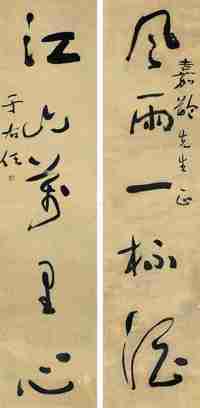 風雨一杯酒
嘉齡先生正
江山萬里心
于右任